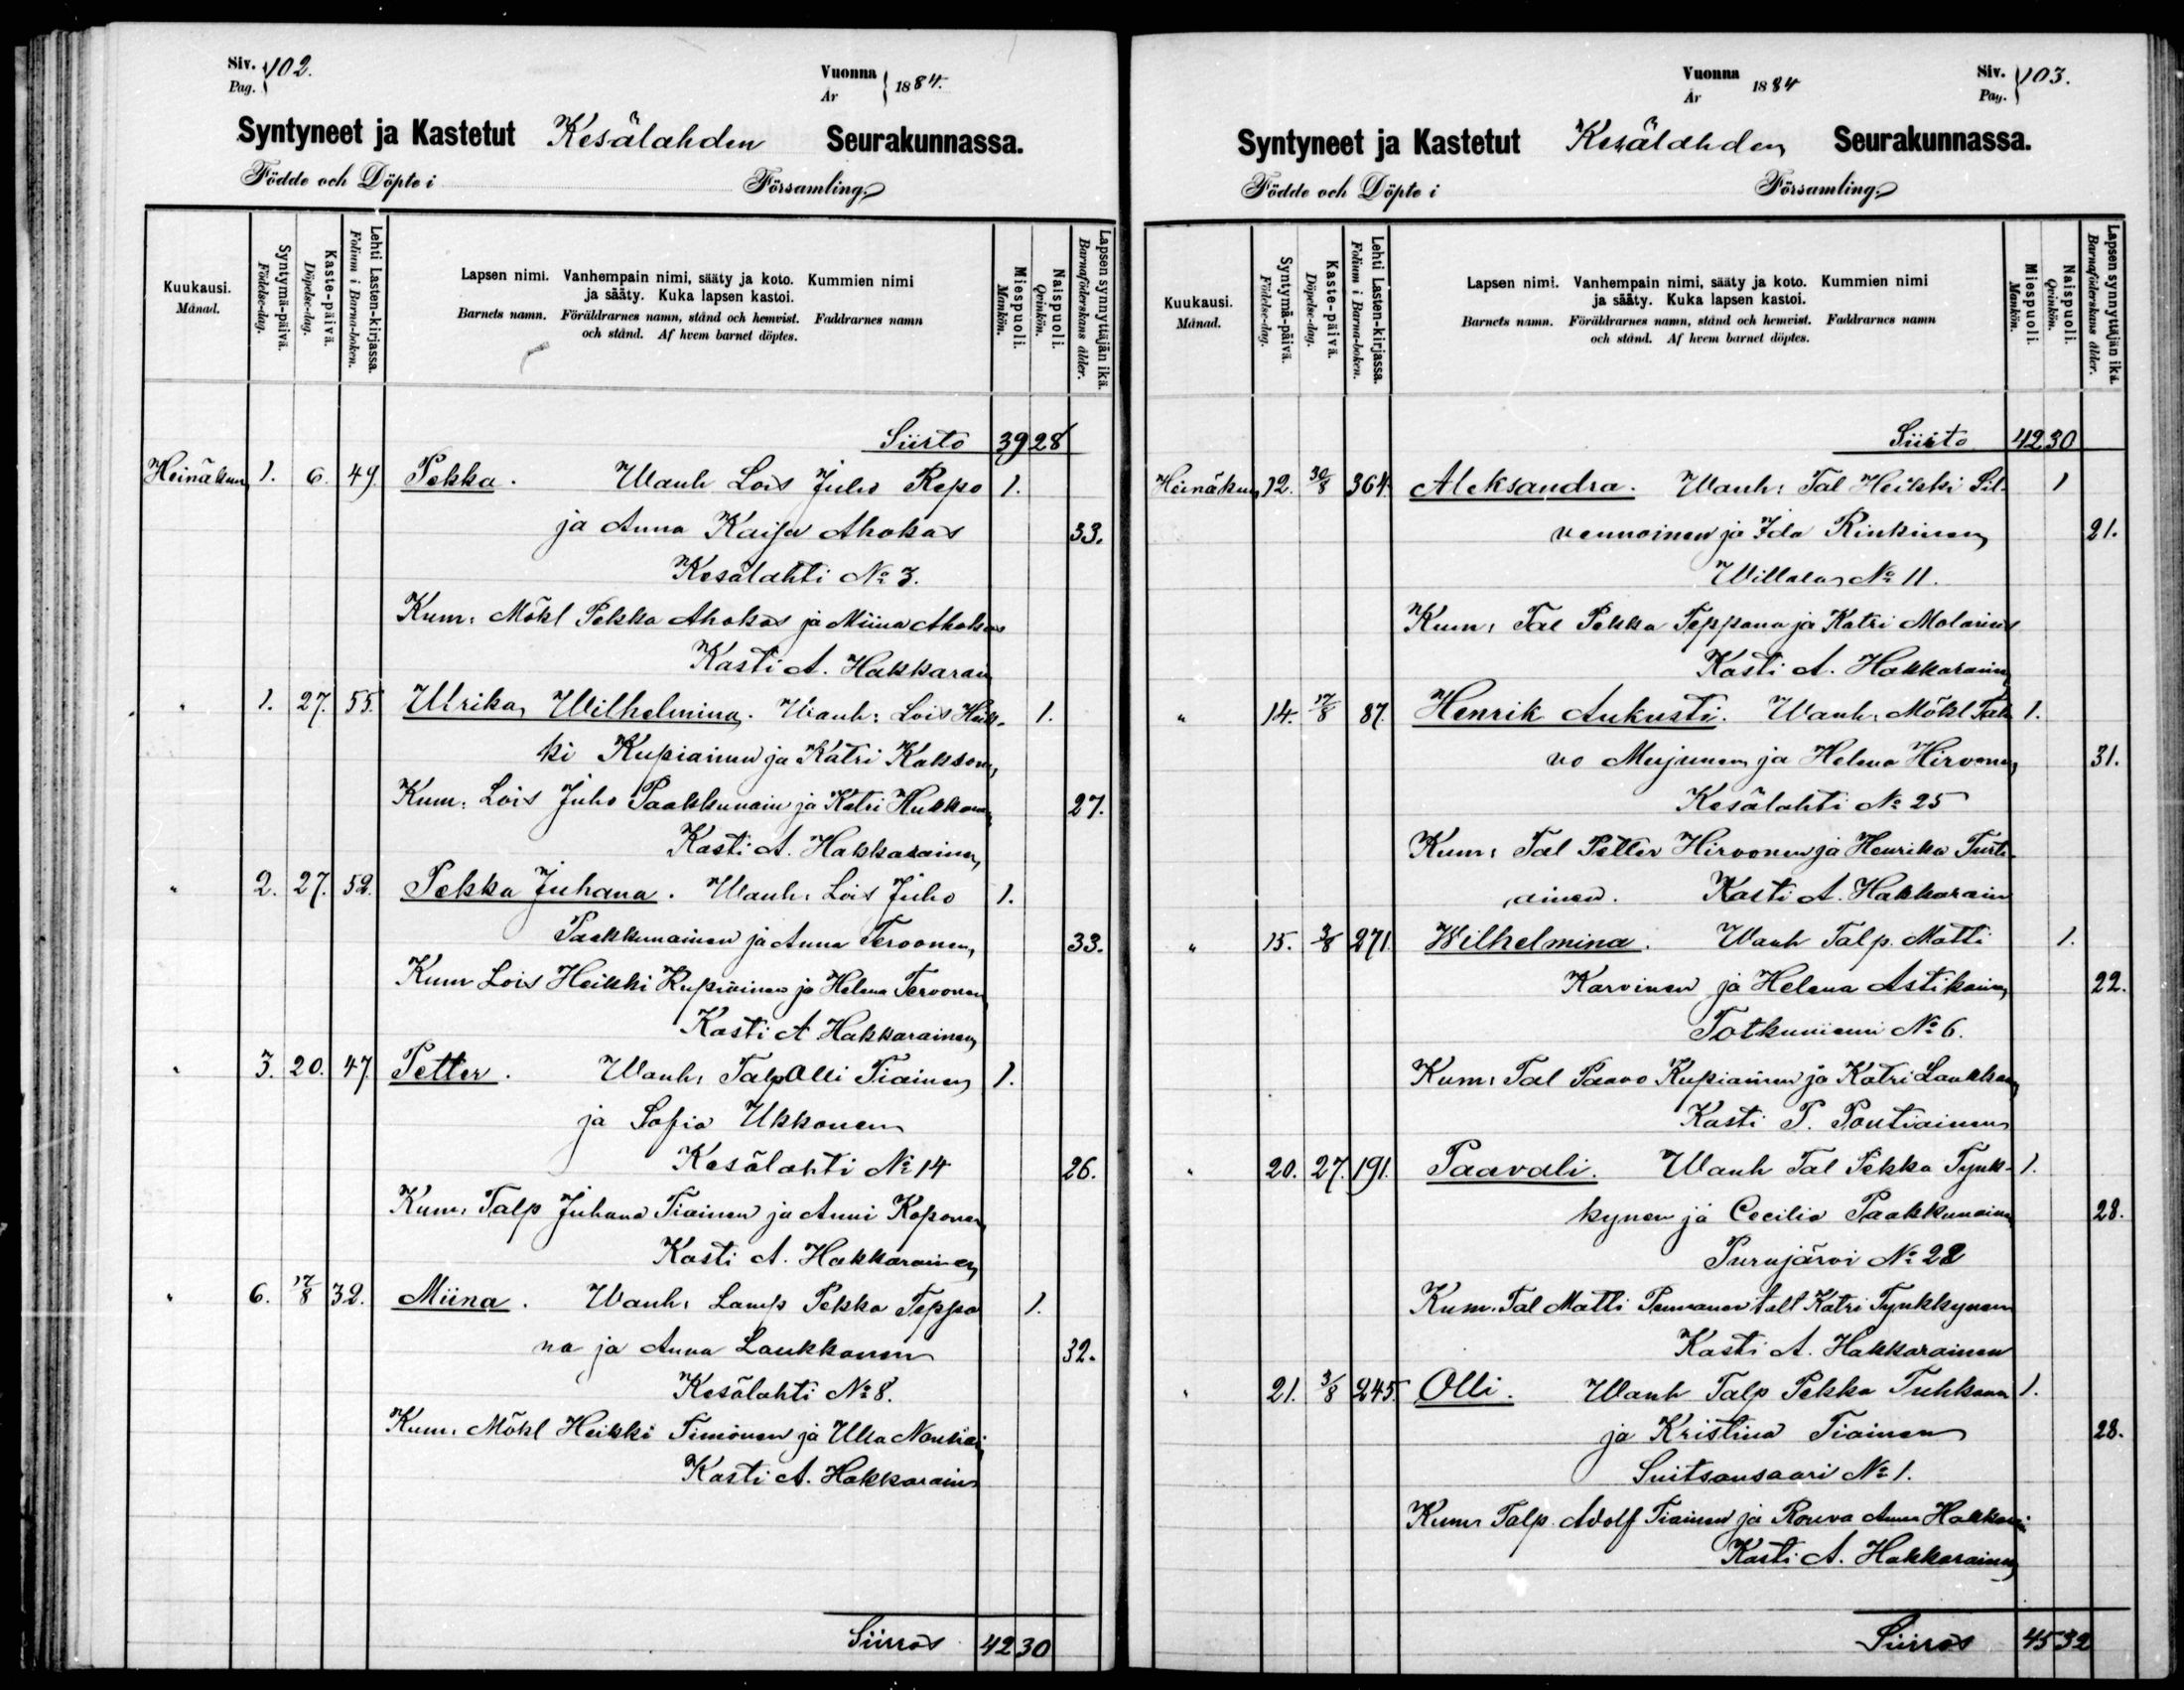 Siv. 102.
Pag.
Vuonna 1884.
År
Syntyneet ja Kastetut Kesälahden Seurakunnassa.
Födde och Döpte i Församling.
Kuukausi.
Månad.
Syntymä-päivä.
Födelse-dag.
Kaste-päivä.
Döpelse-dag.
Lehti Lasten-kirjassa.
Folium i Barna-boken.
Lapsen nimi. Vanhempain nimi, sääty ja koto. Kummien nimi
ja sääty. Kuka lapsen kastoi.
Barnets namn. Föräldrarnes namn, stånd och hemvist. Faddrarnes namn
och stånd. Af hvem barnet döptes.
Miespuoli.
Mankön.
Naispuoli.
Qvinkön.
Lapsen synnyttäjän ikä.
Barnaföderskans ålder.
Siirto 39 28
Heinäkuu 1. 6. 49 Pekka. Wanh Lois Juho Repo 1.
ja Anna Kaisa Ahokas 33.
Kesälahti No 3.
Kum: Mökl Pekka Ahokas ja Miina Ahokas
Kasti A. Hakkarain
" 1. 27. 55. Ulrika Wilhelmina. Wanh: Lois Heik- 1.
ki Kupiainen ja Katri Kakkonen
Kum: Lois Juho Paakkunain ja Katri Hukkanen 27.
Kasti A. Hakkarainen
" 2. 27. 52. Pekka Juhana. Wanh: Lois Juho 1.
Paakkunainen ja Anna Tervonen 33.
Kum Lois Heikki Kupiainen ja Helena Tervonen
Kasti A Hakkarainen
" 3. 20. 47. Petter. Wanh: Talp Olli Tiainen 1.
ja Sofia Ukkonen
Kesälahti No 14 26.
Kum: Talp Juhana Tiainen ja Anni Koponen
Kasti A. Hakkarainen
" 6. 17/8 32. Miina. Wanh: Lamp Pekka Teppa 1.
na ja Anna Laukkanen 32.
Kesälahti No 8.
Kum: Mökl Heikki Timonen ja Ulla
Kasti A. Hakkarain
Siirros 42 30
Vuonna 1884
År
Siv. 103.
Pag.
Syntyneet ja Kastetut Kesälahden Seurakunnassa.
Födde och Döpte i Församling.
Kuukausi.
Månad.
Syntymä-päivä.
Födelse-dag.
Kaste-päivä.
Döpelse-dag.
Lehti Lasten-kirjassa.
Folium i Barna-boken.
Lapsen nimi. Vanhempain nimi, sääty ja koto. Kummien nimi
ja sääty. Kuka lapsen kastoi.
Barnets namn. Föräldrarnes namn, stånd och hemvist. Faddrarnes namn
och stånd. Af hvem barnet döptes.
Miespuoli.
Mankön.
Naispuoli.
Qvinkön.
Lapsen synnyttäjän ikä.
Barnaföderskans ålder.
Siirto 42 30
Heinäkuu 12. 30/8 364. Aleksandra. Wanh: Tal Heikki Sil- 1
vennoinen ja Ida Rinkinen 21.
Willala No 11.
Kum: Tal Pekka Teppana ja Katri
Kasti A. Hakkarainen
" 14. 17/8 87. Henrik Aukusti. Wanh: Mökl 1.
vo ja Helena Hirvonen 31.
Kesälahti No 25
Kum: Tal Petter Hirvonen ja Henrika Turti-
ainen. Kasti A. Hakkarain
" 15. 3/8 271. Wilhelmina. Wanh Talp. Matti 1.
Karvinen ja Helena Astikainen 22.
Totkunniemi No 6.
Kum: Tal Paavo Kupiainen ja Katri Laukkanen
Kasti P. Pontiainen
" 20. 27. 191. Paavali. Wanh Tal Pekka Tynk- 1.
kynen ja Cecilia Paakkunainen 28.
Purujärvi No 22
Kum: Tal Matti Pennanen talt Katri Tynkkynen
Kasti A. Hakkarainen
" 21. 3/8 245. Olli. Wanh Talp Pekka Tuhkanen 1.
ja Kristina Tiainen 28.
Suitsansaari No 1.
Kum: Talp. Adolf Tiainen ja Rouva Anna Hakkarain
Kasti A. Hakkarainen
Siirros 45 32